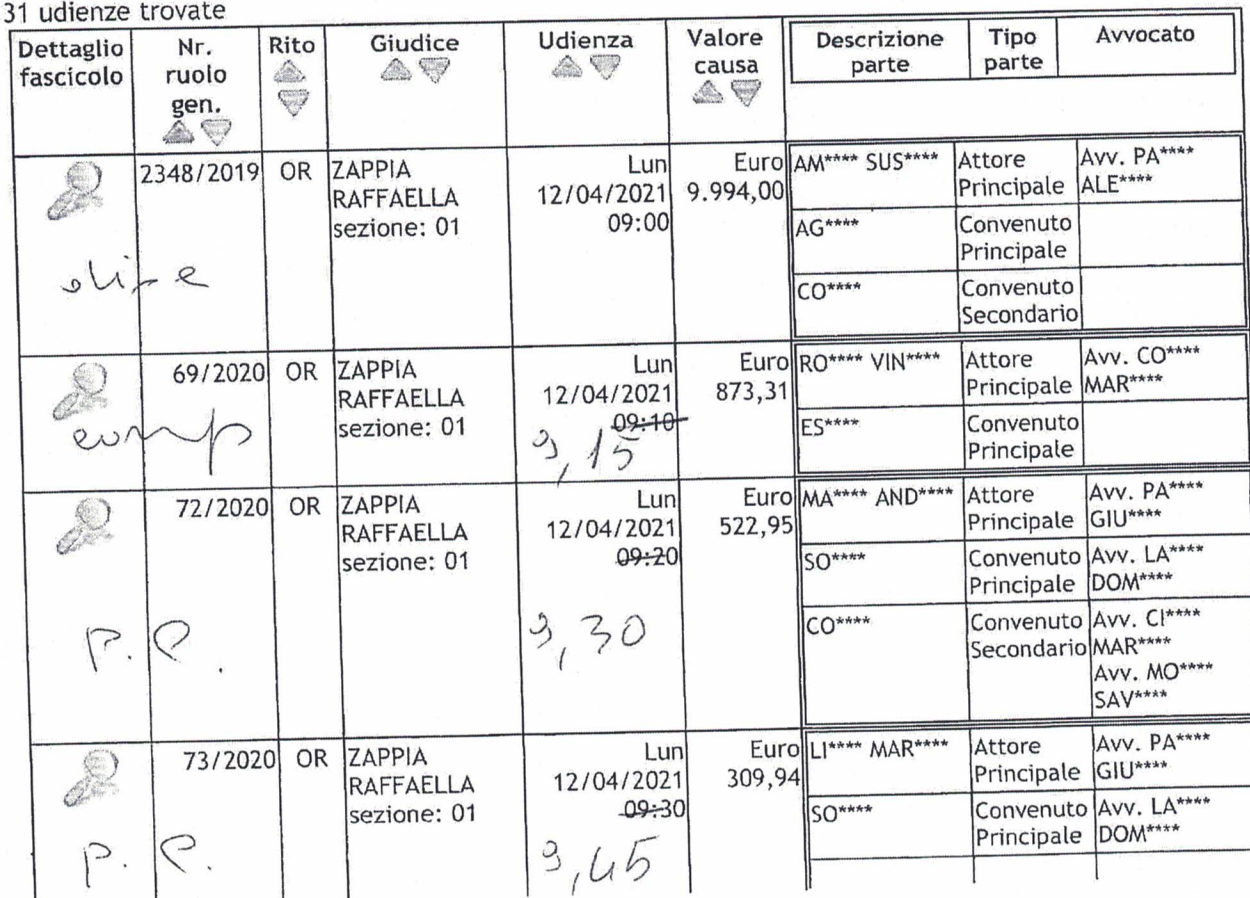 31 udienze trovate
Dettaglio fascicolo Nr. ruolo gen. Rito Giudice Udienza Valore causa Descrizione parte Tipo parte Avvocato
2348/2019 OR ZAPPIA RAFFAELLA sezione: 01 Lun 12/04/2021 09:00 Euro 9.994,00
AM**** SUS**** Attore Principale Avv. PA**** ALE****
AG**** Convenuto Principale
CO**** Convenuto Secondario
69/2020 OR ZAPPIA RAFFAELLA sezione: 01 Lun 12/04/2021 09:10 9,15 Euro 873,31
comp
RO**** VIN**** Attore Principale Avv. CO**** MAR****
ES**** Convenuto Principale
72/2020 OR ZAPPIA RAFFAELLA sezione: 01 Lun 12/04/2021 09:20 9,30 Euro 522,95
MA**** AND**** Attore Principale Avv. PA**** GIU****
SO**** Convenuto Principale Avv. LA**** DOM****
CO**** Convenuto Secondario Avv. CI**** MAR**** Avv. MO**** SAV****
73/2020 OR ZAPPIA RAFFAELLA sezione: 01 Lun 12/04/2021 09:30 9,45 Euro 309,94
LI**** MAR**** Attore Principale Avv. PA**** GIU****
SO**** Convenuto Principale Avv. LA**** DOM****